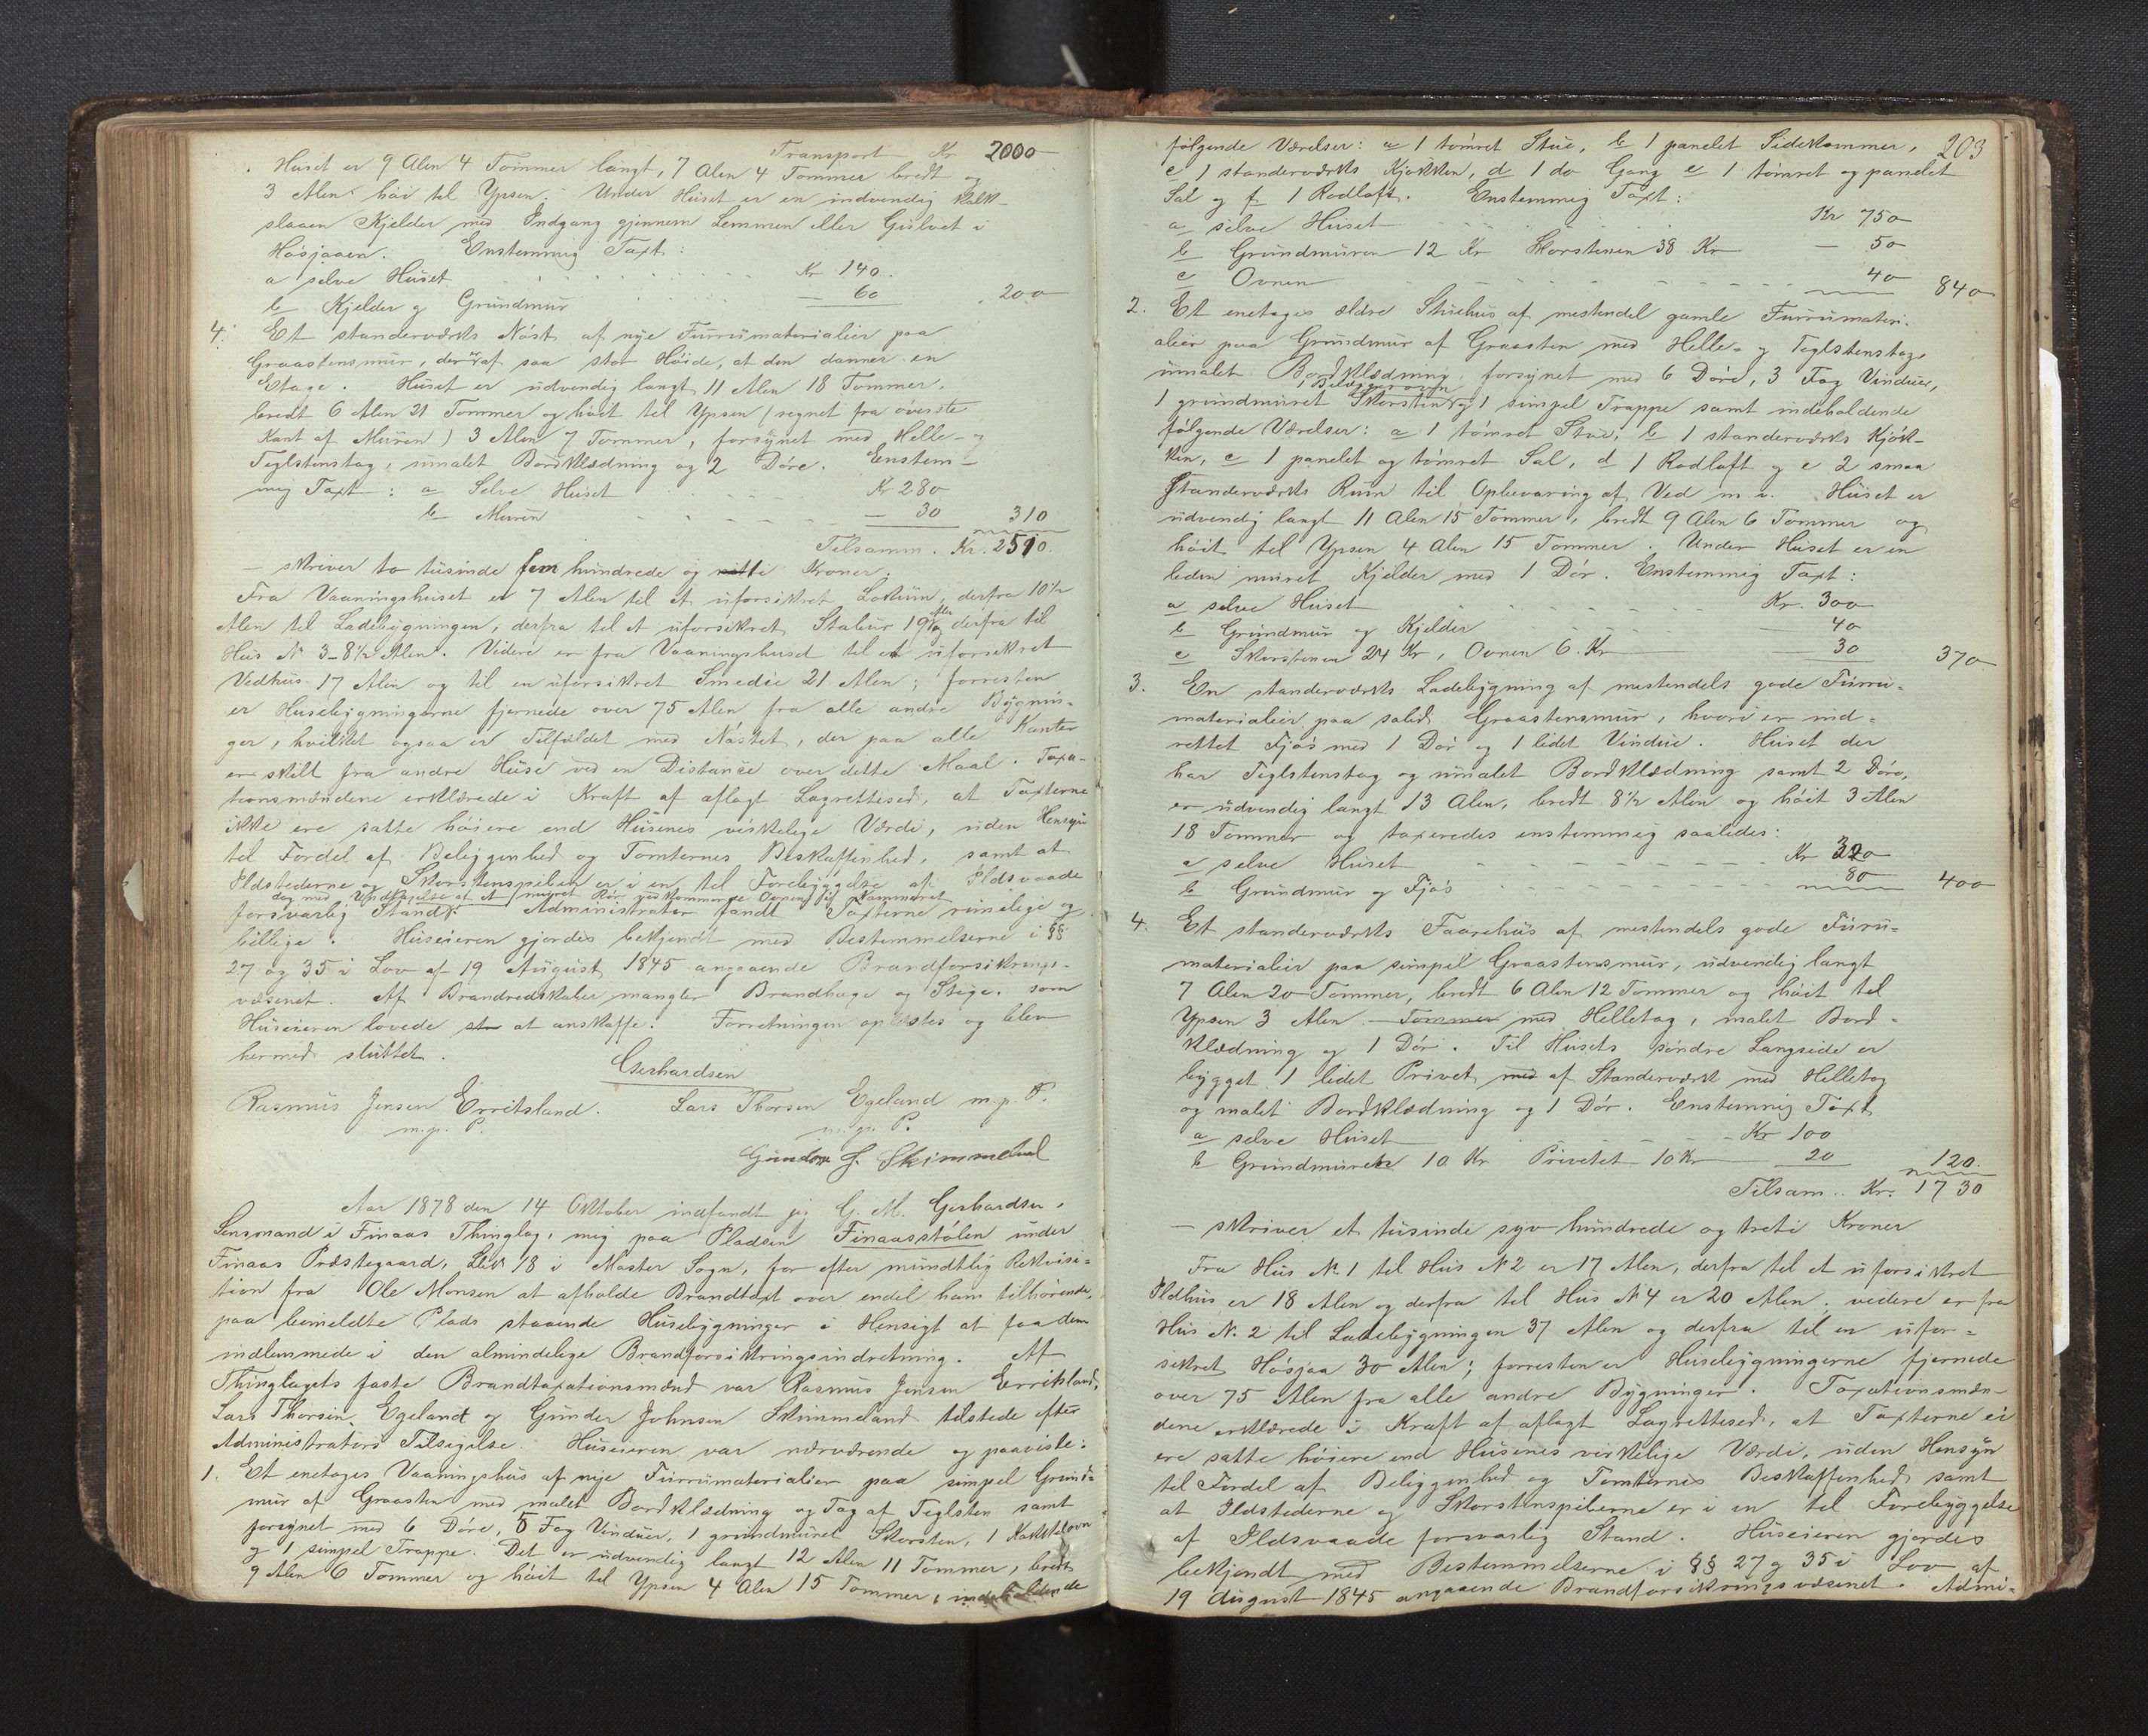 Transport Kr 2000
Huset er 9 Alen 4 Tommer langt, 7 Alen 4 Tommer bredt og
3 Alen høi til Ypsen. Under Huset er en indvendig kalk-
slaaen Kjelder med Indgang gjennem Lemmen eller Gulvet i
Høsjaaen. Enstemmig Taxt:
a selve Huset Kr 140.
b Kjelder og Grundmur — 60 200
4. Et standerværks Nøst af nye Furrumaterialier paa
Graastensmur, der er af saa stor Høide, at den danner en
Etage. Huset er udvendig langt 11 Alen 18 Tommer,
bredt 6 Alen 21 Tommer og høit til Ypsen (regnet fra øverste
Kant af Muren) 3 Alen 7 Tommer, forsynet med Helle- og
Teglstenstag, umalet Bordklædning og 2 Døre. Enstem-
mig Taxt: a Selve Huset Kr 280
b Muren — 30 310
Tilsamm. Kr. 2510.
— skriver to tusinde fem hundrede og ti Kroner.
Fra Vaaningshuset er 7 Alen til et uforsikret Lokum, derfra 10½
Alen til Ladebygningen, derfra til et uforsikret Stabur 19 Alen og derfra til
Hus N 3 - 8½ Alen. Videre er fra Vaaningshuset til et uforsikret
Vedhus 17 Alen og til en uforsikret Smedie 21 Alen; forresten
er Husebygningerne fjernede over 75 Alen fra alle andre Bygnin-
ger, hvilket ogsaa er Tilfældet med Nøstet, der paa alle Kanter
er skilt fra andre Huse ved en Distance over dette Maal. Taxa-
tionsmændene erklærede i Kraft af aflagt Lagrettesed, at Taxterne
ikke ere satte høiere end Husenes virkelige Værdi, uden Hensyn
til Fordel af Beliggenhed og Tomternes Beskaffenhed, samt at
Ildstederne og Skorstenspiben er i en til Forebyggelse af Ildsvaade
dog med Undtagelse af et muret Rør vedkommende Ovnen i Kammeret
forsvarlig Stand. Administrator fandt Taxterne rimelige og
billige. Huseieren gjordes bekjendt med Bestemmelserne i §§
27 og 35 i Lov af 19 August 1845 angaaende Brandforsikrings-
væsenet. Af Brandredskaber mangler Brandhage og Stige, som
Huseieren lovede at anskaffe. Forretningen oplæstes og blev
hermed sluttet.
Gerhardsen
Rasmus Jensen Erritsland. Lars Thorsen Egeland m.p.P.
m.p.P. m.p.P.
Gunder J. Skimmeland
Aar 1878 den 14 Oktober indfandt jeg G. M. Gerhardsen,
Lensmand i Finaas Thinglag, mig paa Pladsen Finaasstølen under
Finaas Præstegaard, LbN 18 i Moster Sogn, for efter mundtlig Rekvisi-
tion fra Ole Monsen at afholde Brandtaxt over endel ham tilhørende,
paa bemeldte Plads staaende Husebygninger i Hensigt at faa dem
indlemmede i den almindelige Brandforsikringsindretning. Af
Thinglagets faste Brandtaxationsmænd var Rasmus Jensen Erritsland,
Lars Thorsen Egeland og Gunder Johnsen Skimmeland tilstede efter
Administrators Tilsigelse. Huseieren var nærværende og paaviste:
1. Et enetages Vaaningshus af nye Furrumaterialier paa simpel Grund-
mur af Graasten med malet Bordklædning og Tag af Teglsten samt
forsynet med 6 Døre, 5 Fag Vinduer, 1 grundmuret Skorsten, 1 Kakkelovn
og 1 simpel Trappe. Det er udvendig langt 12 Alen 11 Tommer, bredt
9 Alen 6 Tommer og høit til Ypsen 4 Alen 15 Tommer, indeholdende
203
følgende Værelser: a 1 tømret Stue, b 1 panelet Sidekammer,
c 1 standerværks Kjøkken, d 1 do Gang e 1 tømret og panelet
Sal og f 1 Rodloft. Enstemmig Taxt:
a selve Huset Kr 750
b Grundmuren 12 Kr Skorstenen 38 Kr — 50
c Ovnen 40 840
2. Et enetages ældre Stuehus af mestendel gamle Furrumateri-
alier paa Grundmur af Graasten med Helle- og Teglstenstag,
umalet Bordklædning, forsynet med 6 Døre, 3 Fag Vinduer,
1 Bilæggerovn
1 grundmuret Skorsten og 1 simpel Trappe samt indeholdende
følgende Værelser: a 1 tømret Stue, b 1 standerværks Kjøk-
ken, c 1 panelet og tømret Sal, d 1 Rodloft og e 2 smaa
Standerværks Rum til Opbevaring af Ved m.v. Huset er
udvendig langt 11 Alen 15 Tommer, bredt 9 Alen 6 Tommer og
høit til Ypsen 4 Alen 15 Tommer. Under Huset er en
leden muret Kjelder med 1 Dør. Enstemmig Taxt:
a selve Huset Kr. 300
b Grundmur og Kjelder 40
c Skorstenen 24 Kr, Ovnen 6 Kr 30 370
3. En standerværks Ladebygning af mestendels gode Furru-
materialier paa solid Graastensmur, hvori er ind-
rettet Fjøs med 1 Dør og 1 lidet Vindue. Huset der
har Teglstenstag og umalet Bordklædning samt 2 Døre,
er udvendig langt 13 Alen, bredt 8½ Alen og høit 3 Alen
18 Tommer og taxeredes enstemmig saaledes:
a selve Huset Kr 320
b Grundmur og Fjøs 80 400
4. Et standerværks Faarehus af mestendels gode Furu-
materialier paa simpel Graastensmur, udvendig langt
7 Alen 20 Tommer, bredt 6 Alen 12 Tommer og høit til
Ypsen 3 Alen — Tommer med Helletag, malet Bord-
klædning og 1 Dør. Til Husets søndre Langside er
bygget 1 lidet Privet med af Standerværk med Helletag
og malet Bordklædning og 1 Dør. Enstemmig Taxt
a selve Huset Kr 100
b Grundmuren 10 Kr Privetet 10 Kr 20 120.
Tilsam.. Kr. 1730
— skriver et tusinde syv hundrede og treti Kroner
Fra Hus N. 1 til Hus N 2 er 17 Alen, derfra til et uforsikret
Ildhus er 18 Alen og derfra til Hus N 4 er 20 Alen; videre er fra
Hus N. 2 til Ladebygningen 37 Alen og derfra til en ufor-
sikret Høsjaa 30 Alen; forresten er Husebygningerne fjernede
over 75 Alen fra alle andre Bygninger. Taxationsmæn-
dene erklærede i Kraft af aflagt Lagrettesed, at Taxterne ei
ere satte høiere end Husenes virkelige Værdi, uden Hensyn
til Fordel af Beliggenhed og Tomternes Beskaffenhed samt
at Ildstederne og Skorstenspiberne er i en til Forebyggelse
af Ildsvaade forsvarlig Stand. Huseieren gjordes
bekjendt med Bestemmelserne i §§ 27 og 35 i Lov af
19 August 1845 angaaende Brandforsikringsvæsenet. Admi-